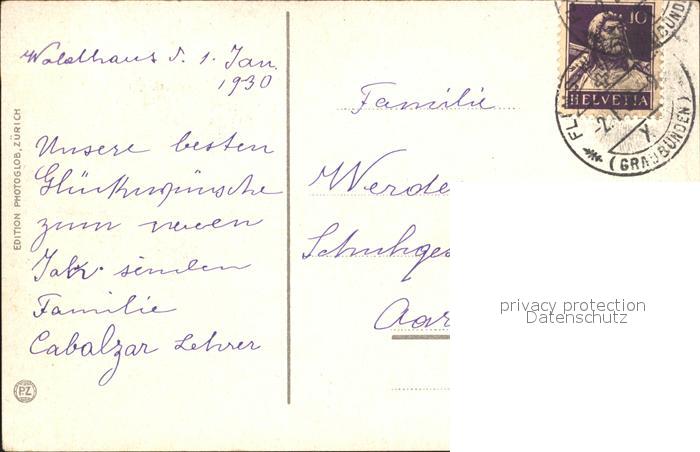 Waldhaus d. 1. Jan.
1930
Unsere besten
Glückwünsche
zum neuen
Jahr senden
Familie
Cabalzar Lehrer
EDITION PHOTOGLOB, ZÜRICH
PZ
Familie
Werde
Schuhges
Aar
10
HELVETIA
FL
-2.1
(GRAUBÜNDEN)
privacy protection
Datenschutz